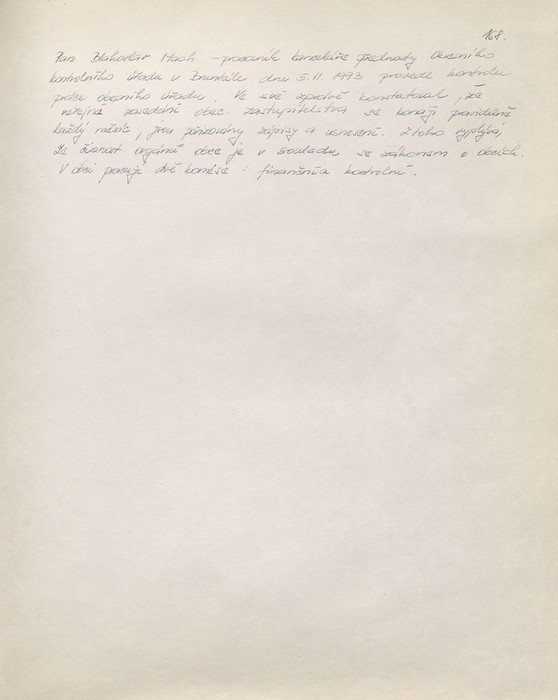 168.
Pan Blahoslav Mach - pracovník kanceláře přednosty Okresního
kontrolního úřadu v Bruntále dne 5.11.1993 provedl kontrolu
práce obecního úřadu. Ve své zprávě konstatoval, že
veřejná zasedání obec. zastupitelstva se konají pravidelně
každý měsíc, jsou pořizovány zápisy a usnesení. Z toho vyplývá,
že činnost orgánů obce je v souladu se zákonem o obcích.
V obci pracují dvě komise: finanční a kontrolní.